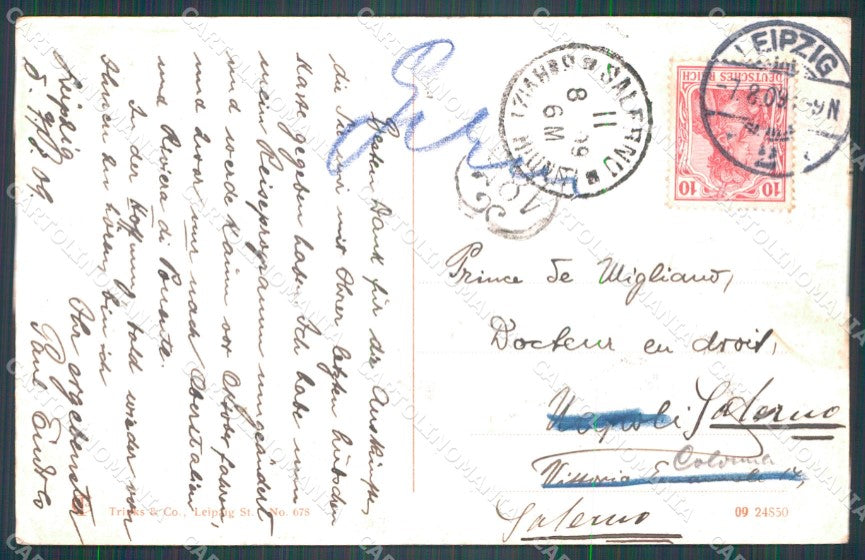 Besten Dank für die Auskunft,
die Sie mir mit Ihrer letzten hübschen
Karte gegeben haben. Ich habe nun
mein Reiseprogramm umgeändert
und werde kaum vor Oktober fahren,
und zwar nur nach Oberitalien
und Riviera di Ponente.
In der Hoffnung, bald wieder von
Ihnen zu hören, bin ich
Ihr ergebenster
Paul
Leipzig
d. 7/8. 09.
SALERNO
11
8 09
6 M
LEIPZIG
7.8.09
DEUTSCHES REICH
10 10
Prince de Migliano,
Docteur en droit,
Napoli Salerno
Colonna
Vittoria
Salerno
Trinks & Co., Leipzig St. No. 678
09 24850
CARTOLINOMANIA